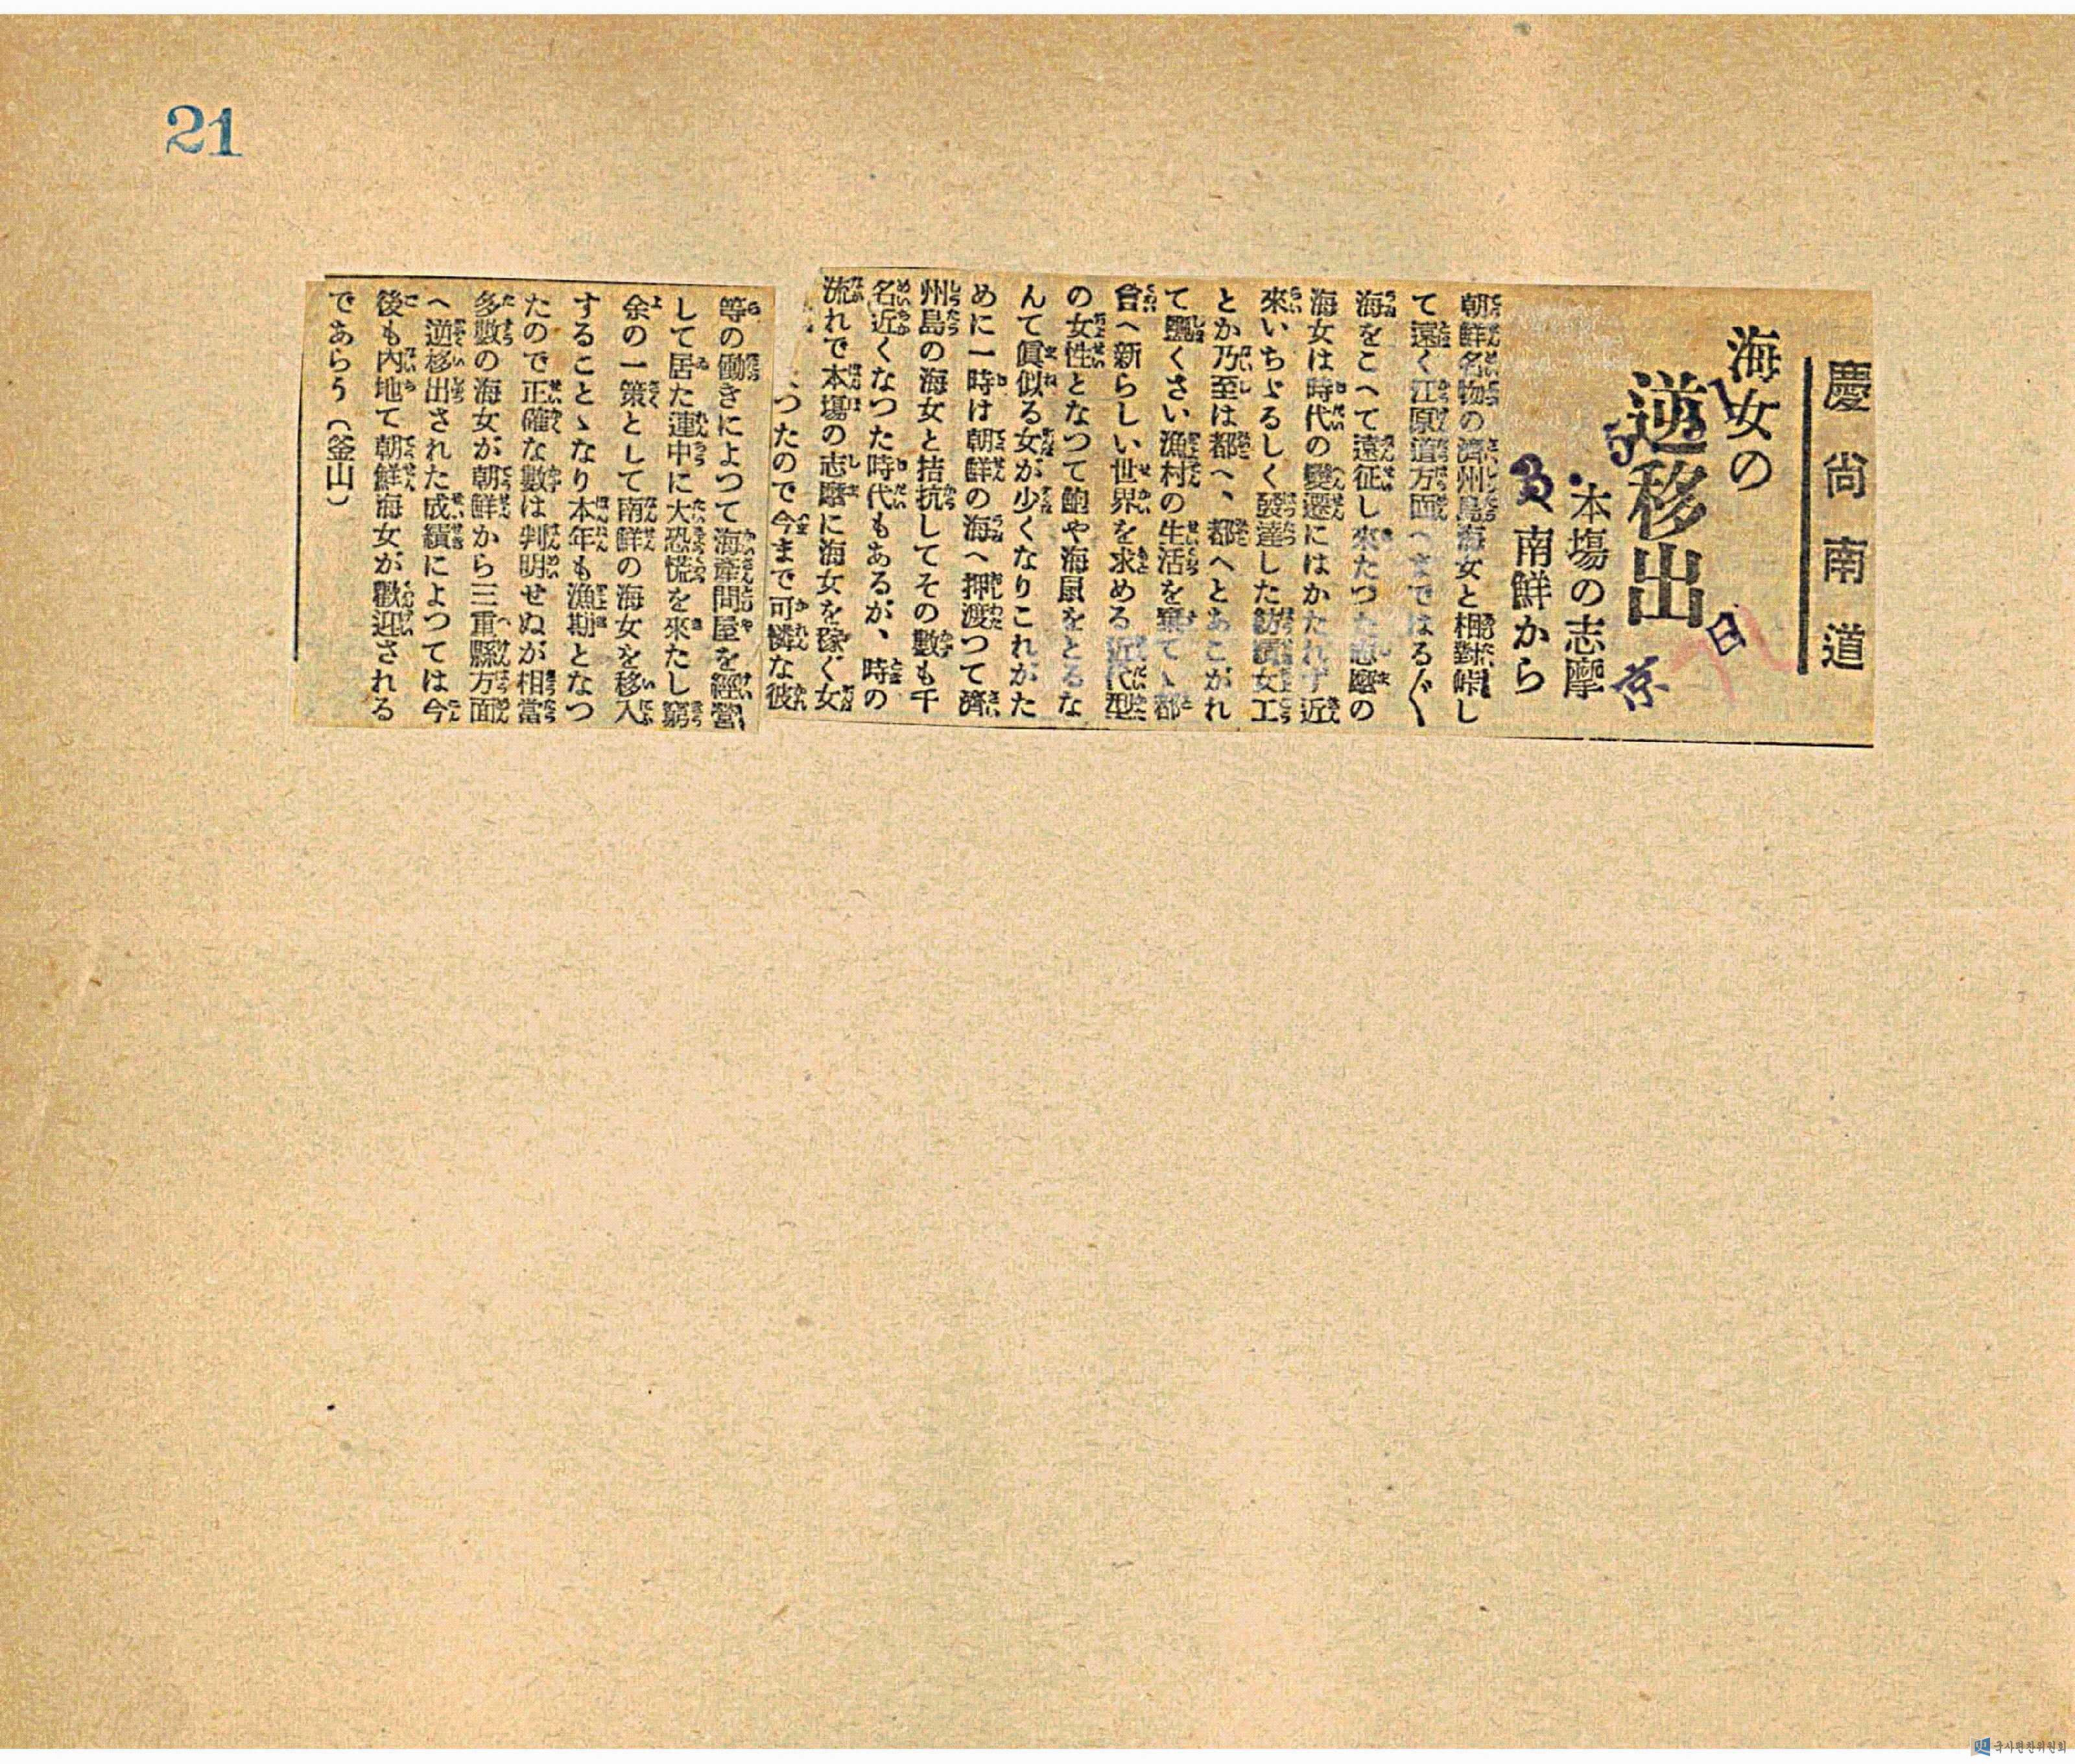 21
慶尚南道
海女の
逆移出
本場の志摩
南鮮から
朝鮮名物の濟州島海女と相對峠し
て遠く江原道方面へまではる〴〵
海をこへて遠征し來たつた志磨の
海女は時代の變遷にはかたれず近
來いちぢるしく發達した紡績女工
とか乃至は都へ、都へとあこがれ
て鹽くさい漁村の生活を棄てゝ都
會へ新らしい世界を求める近代型
の女性となつて鮑や海鼠をとるな
んて眞似る女が少くなりこれがた
めに一時は朝鮮の海へ押渡つて濟
州島の海女と拮抗してその數も千
名近くなつた時代もあるが、時の
流れで本場の志磨に海女を稼ぐ女
つたので今まで可憐な彼
等の働きによつて海産問屋を經營
して居た連中に大恐慌を來たし窮
余の一策として南鮮の海女を移入
することゝなり本年も漁期となつ
たので正確な數は判明せぬが相當
多數の海女が朝鮮から三重縣方面
へ逆移出された成績によつては今
後も內地て朝鮮海女が歡迎される
であらう(釜山)
국사편찬위원회